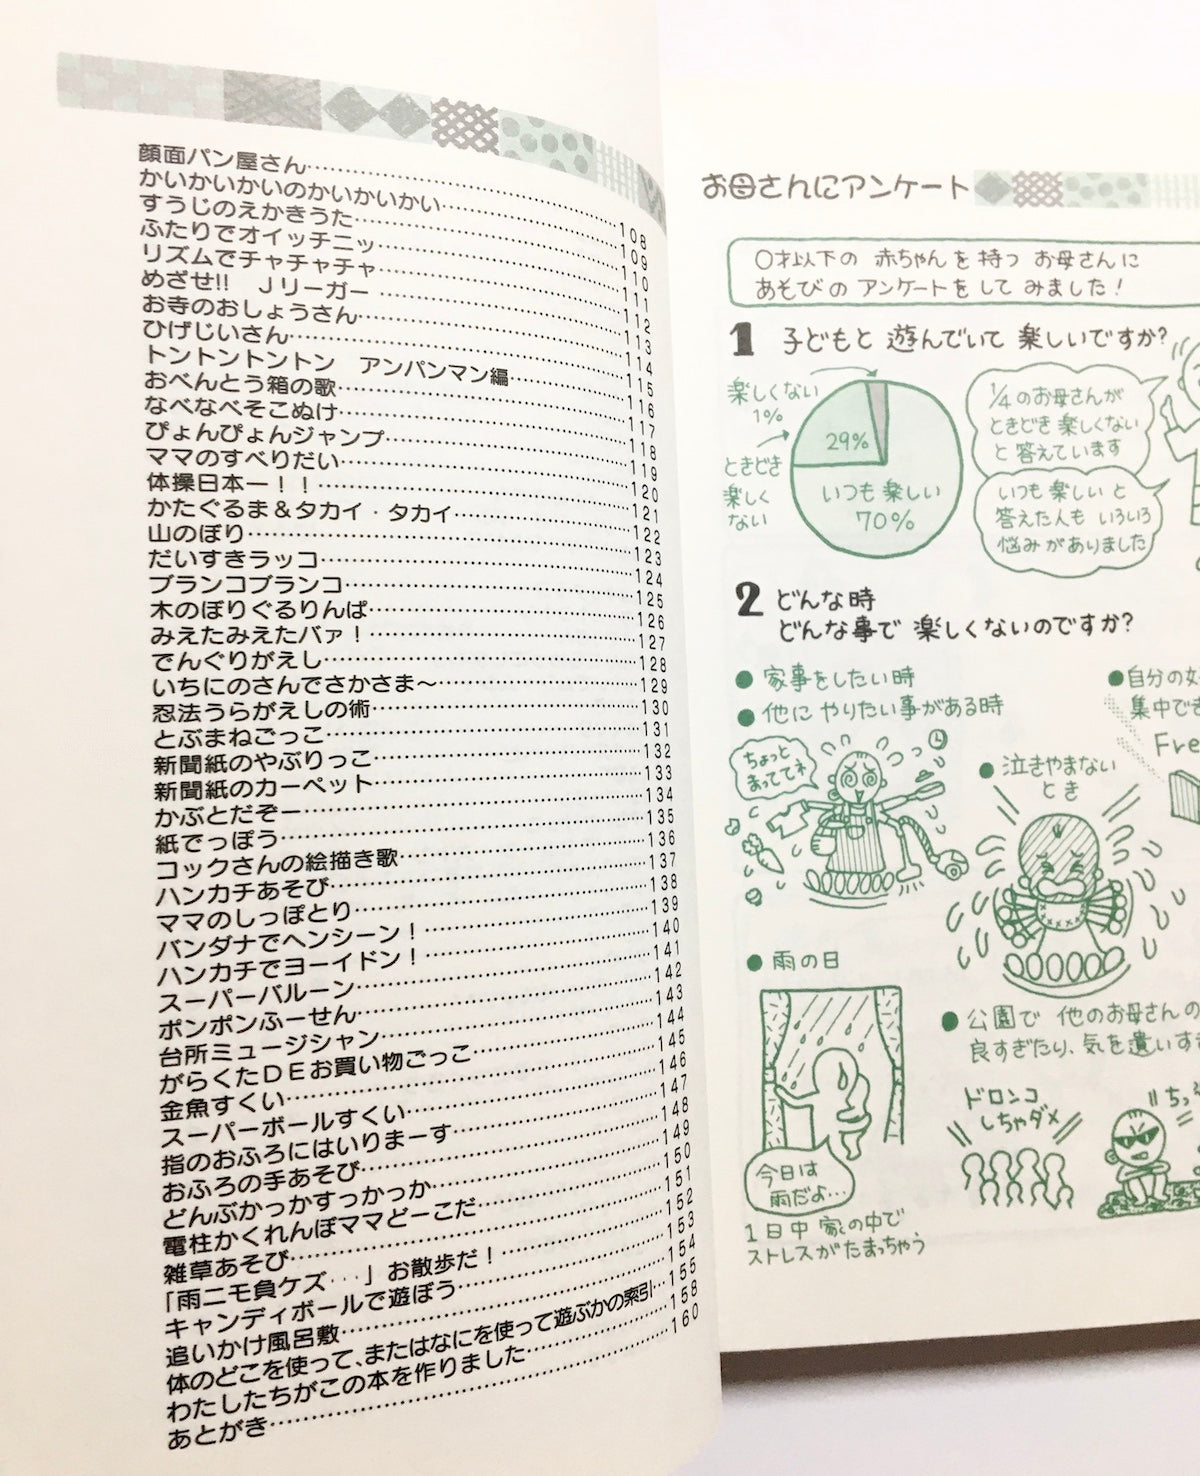 顔面パン屋さん……108
かいかいかいのかいかいかい……109
すうじのえかきうた……110
ふたりでオイッチニッ……111
リズムでチャチャチャ……112
めざせ!!　Jリーガー……113
お寺のおしょうさん……114
ひげじいさん……115
トントントントン　アンパンマン編……116
おべんとう箱の歌……117
なべなべそこぬけ……118
ぴょんぴょんジャンプ……119
ママのすべりだい……120
体操日本一！！……121
かたぐるま＆タカイ・タカイ……122
山のぼり……123
だいすきラッコ……124
ブランコブランコ……125
木のぼりぐるりんぱ……126
みえたみえたバァ！……127
でんぐりがえし……128
いちにのさんでさかさま〜……129
忍法うらがえしの術……130
とぶまねごっこ……131
新聞紙のやぶりっこ……132
新聞紙のカーペット……133
かぶとだぞー……134
紙でっぽう……135
コックさんの絵描き歌……136
ハンカチあそび……137
ママのしっぽとり……138
バンダナでヘンシーン！……139
ハンカチでヨーイドン！……140
スーパーバルーン……141
ポンポンふーせん……142
台所ミュージシャン……143
がらくたＤＥお買い物ごっこ……144
金魚すくい……145
スーパーボールすくい……146
指のおふろにはいりまーす……147
おふろの手あそび……148
どんぶかっかすっかっか……149
電柱かくれんぼママどーこだ……150
雑草あそび……151
「雨ニモ負ケズ・・・」お散歩だ！……152
キャンディボールで遊ぼう……153
追いかけ風呂敷……154
体のどこを使って、またはなにを使って遊ぶかの索引…155
わたしたちがこの本を作りました……158
あとがき……160
お母さんにアンケート
0才以下の 赤ちゃんを 持つ お母さんに
あそびの アンケートを して みました！
1 子どもと 遊んでいて 楽しいですか？
楽しくない
1%
29%
ときどき
楽しく
ない
いつも 楽しい
70%
1/4のお母さんが
ときどき 楽しくない
と 答えています
いつも 楽しい と
答えた人も いろいろ
悩みがありました
2 どんな時
どんな事で 楽しくないのですか？
● 家事をしたい時
● 他に やりたい事がある時
ちょっと
まっててネ
● 自分の
集中でき
Fre
● 泣きやまない
とき
● 雨の日
今日は
雨だよ…
1日中 家の中で
ストレスがたまっちゃう
● 公園で 他のお母さんの
良すぎたり、気を遣いす
ドロンコ
しちゃダメ
ちっ